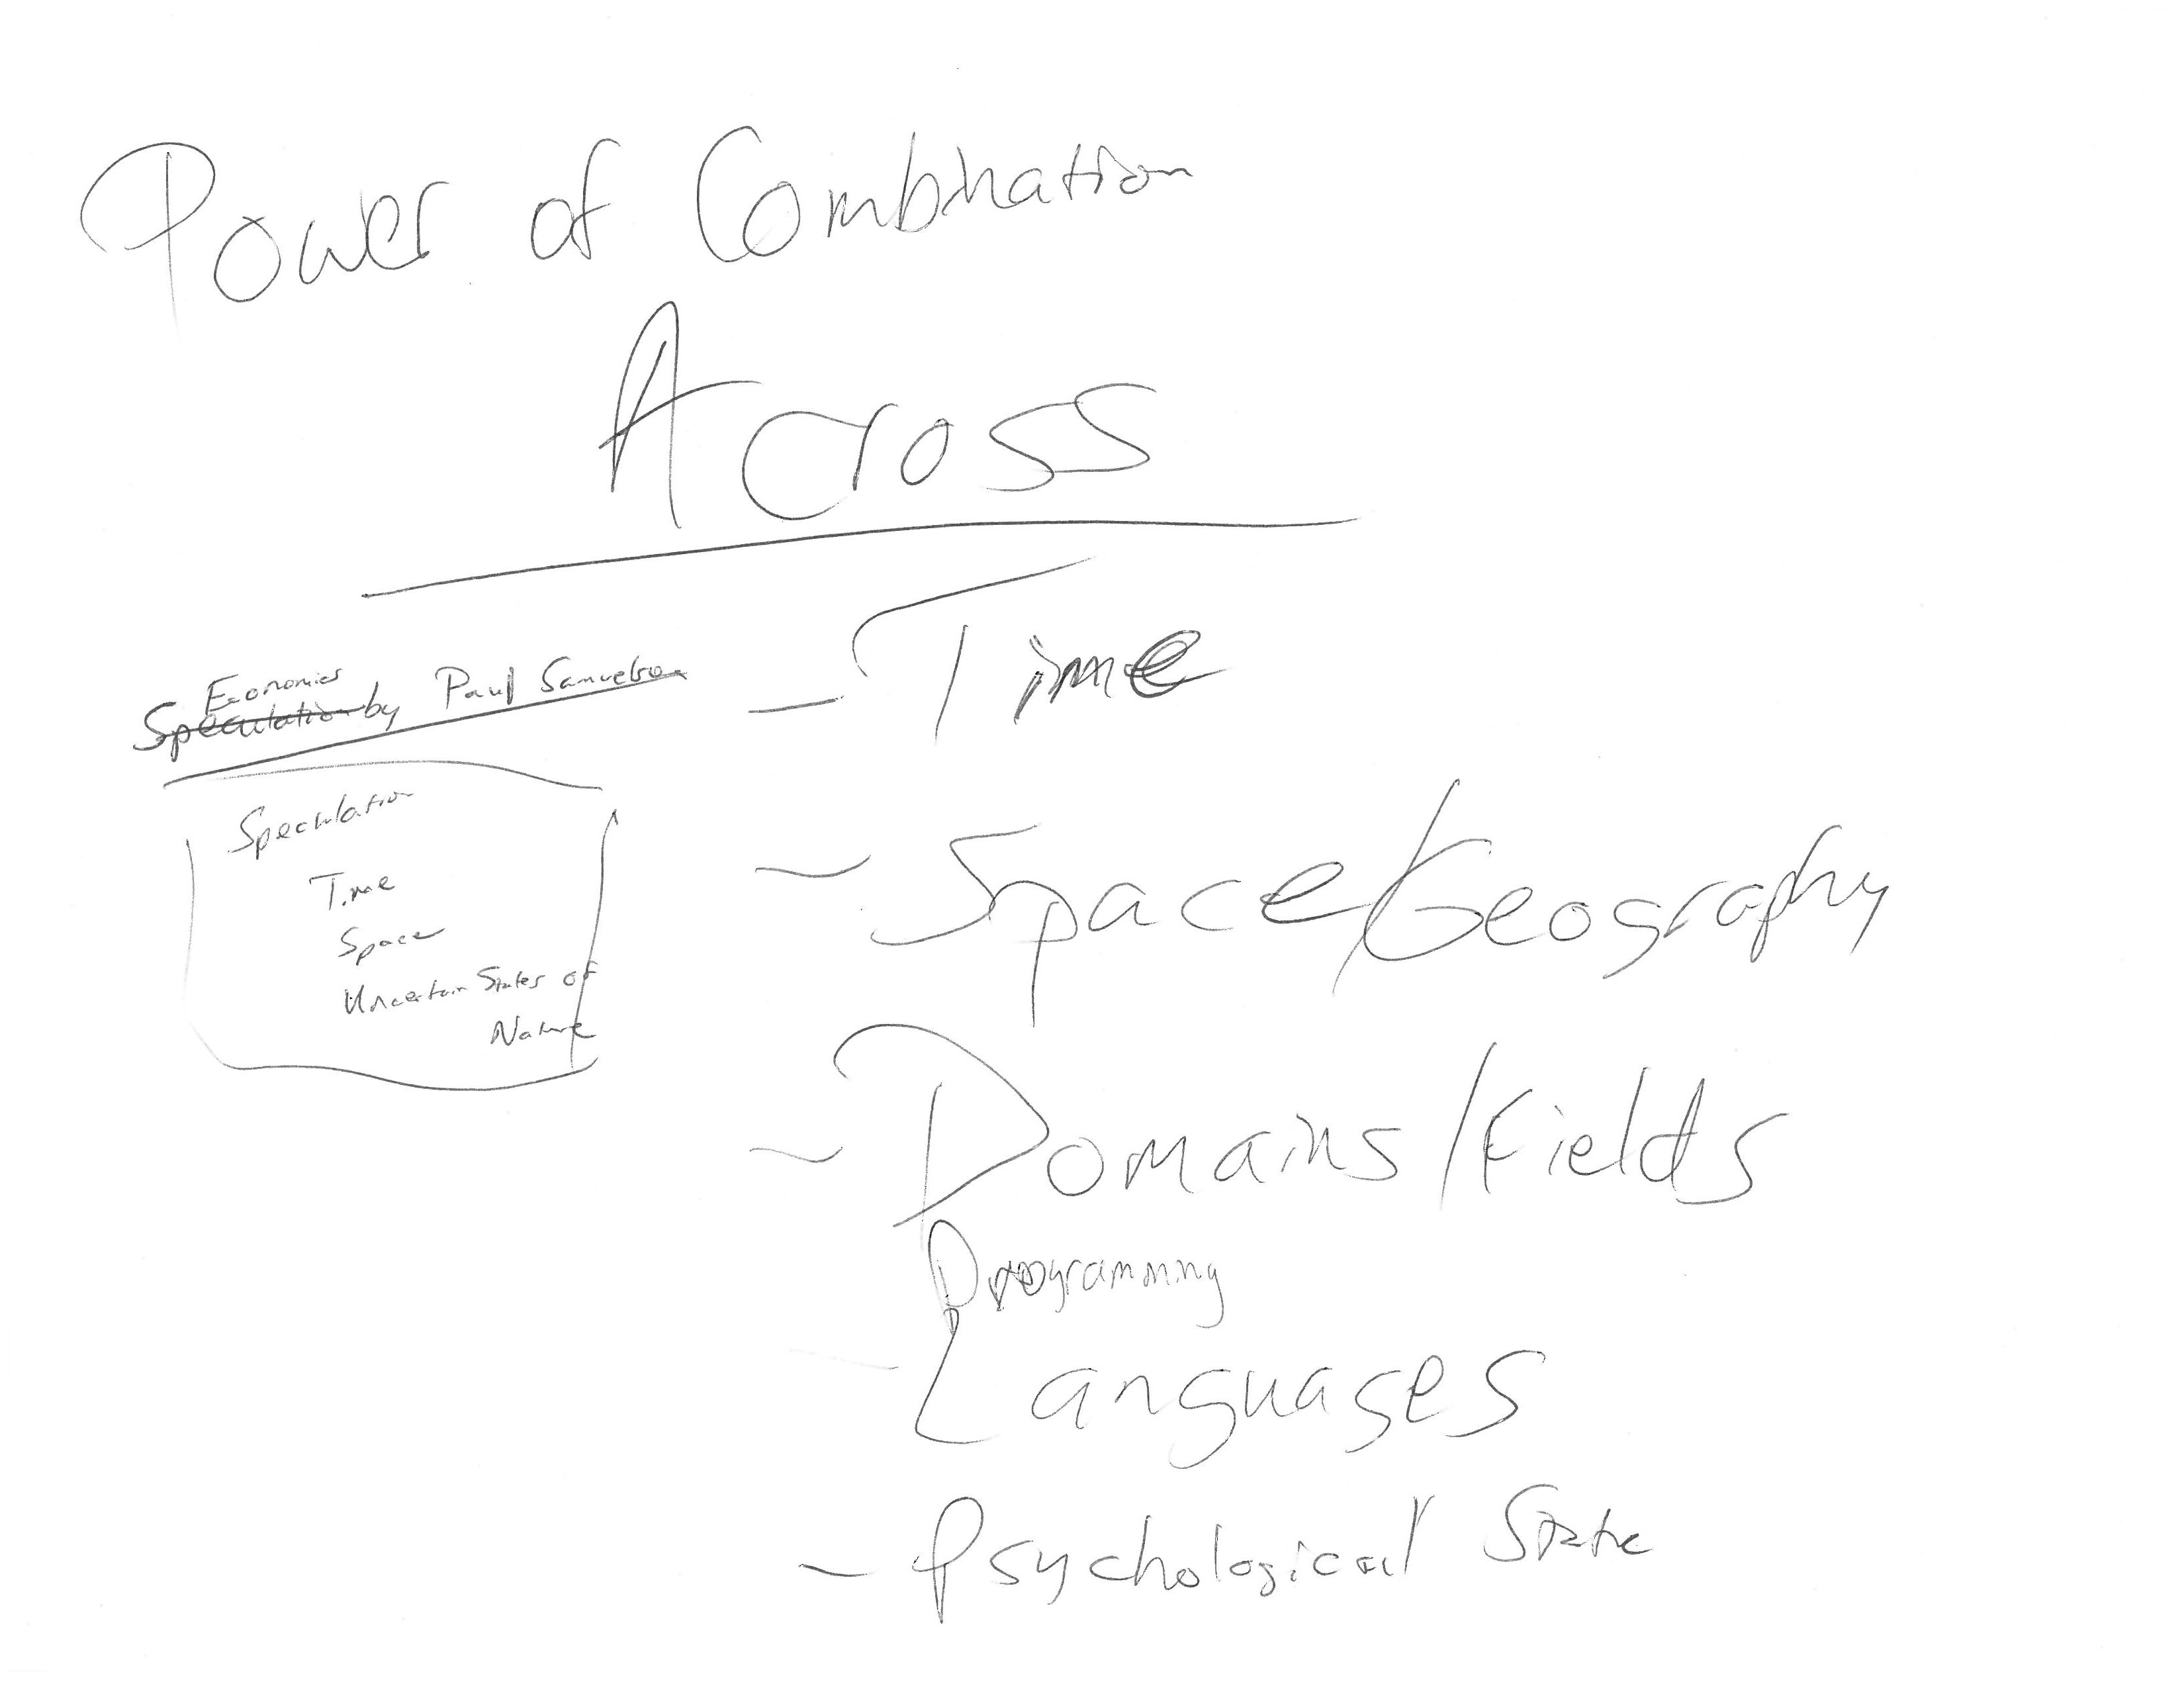 Power of Combination
Across
- Time
Economics
Speculation by Paul Samuelson
Speculation
Time
Space
Uncertain States of
Nature
- Space/Geography
- Domains/Fields
Programming
- Languages
- Psychological State